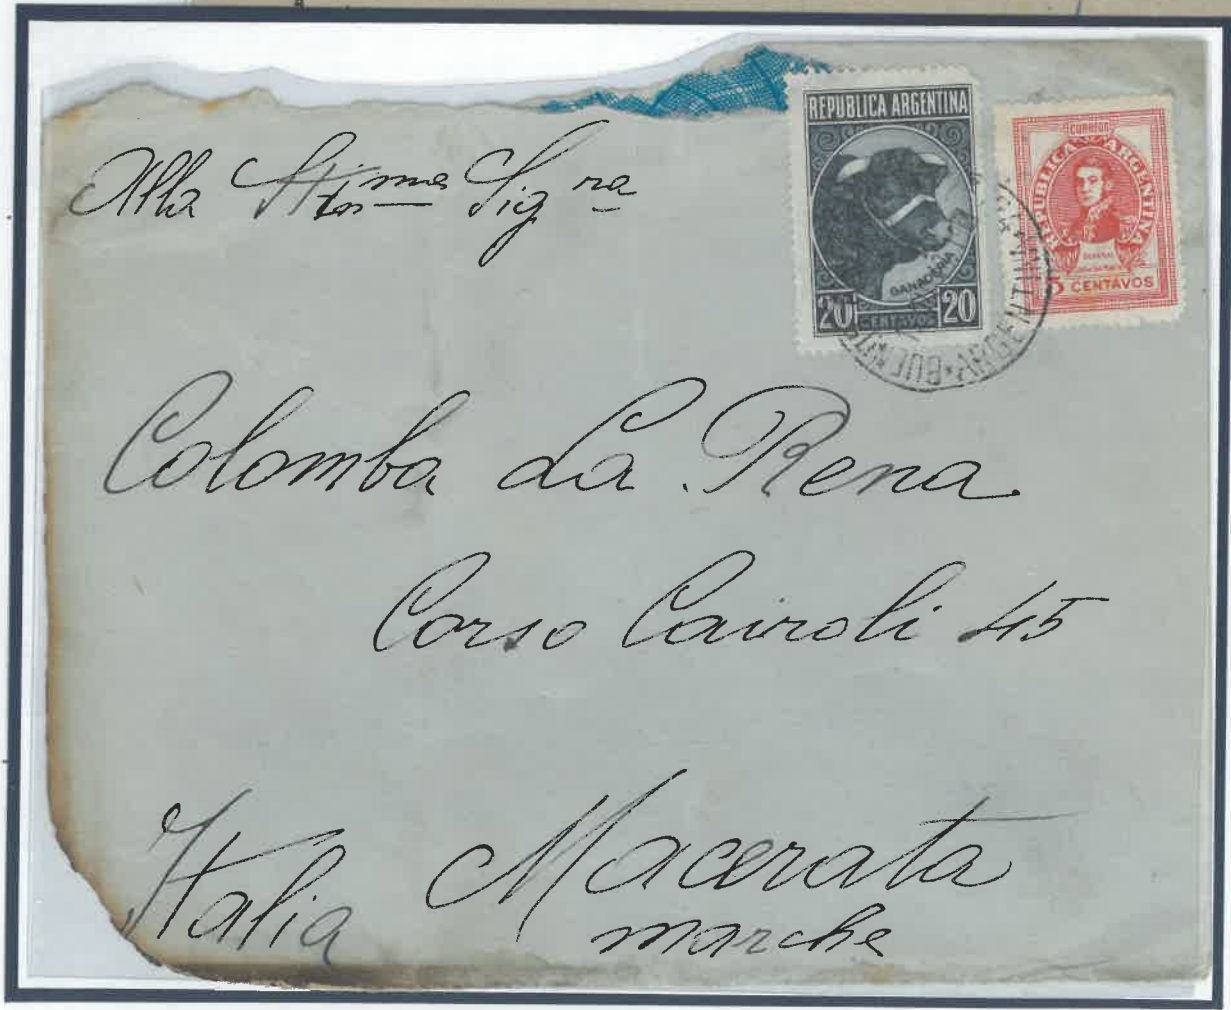 Alla Stimma Sigra
REPUBLICA ARGENTINA
GANADERIA
20 CENTAVOS 20
CORREOS
REPUBLICA ARGENTINA
GENERAL
5 CENTAVOS
ARGENTINA
Colomba La Rena
Corso Cairoli 45
Italia Macerata
marche